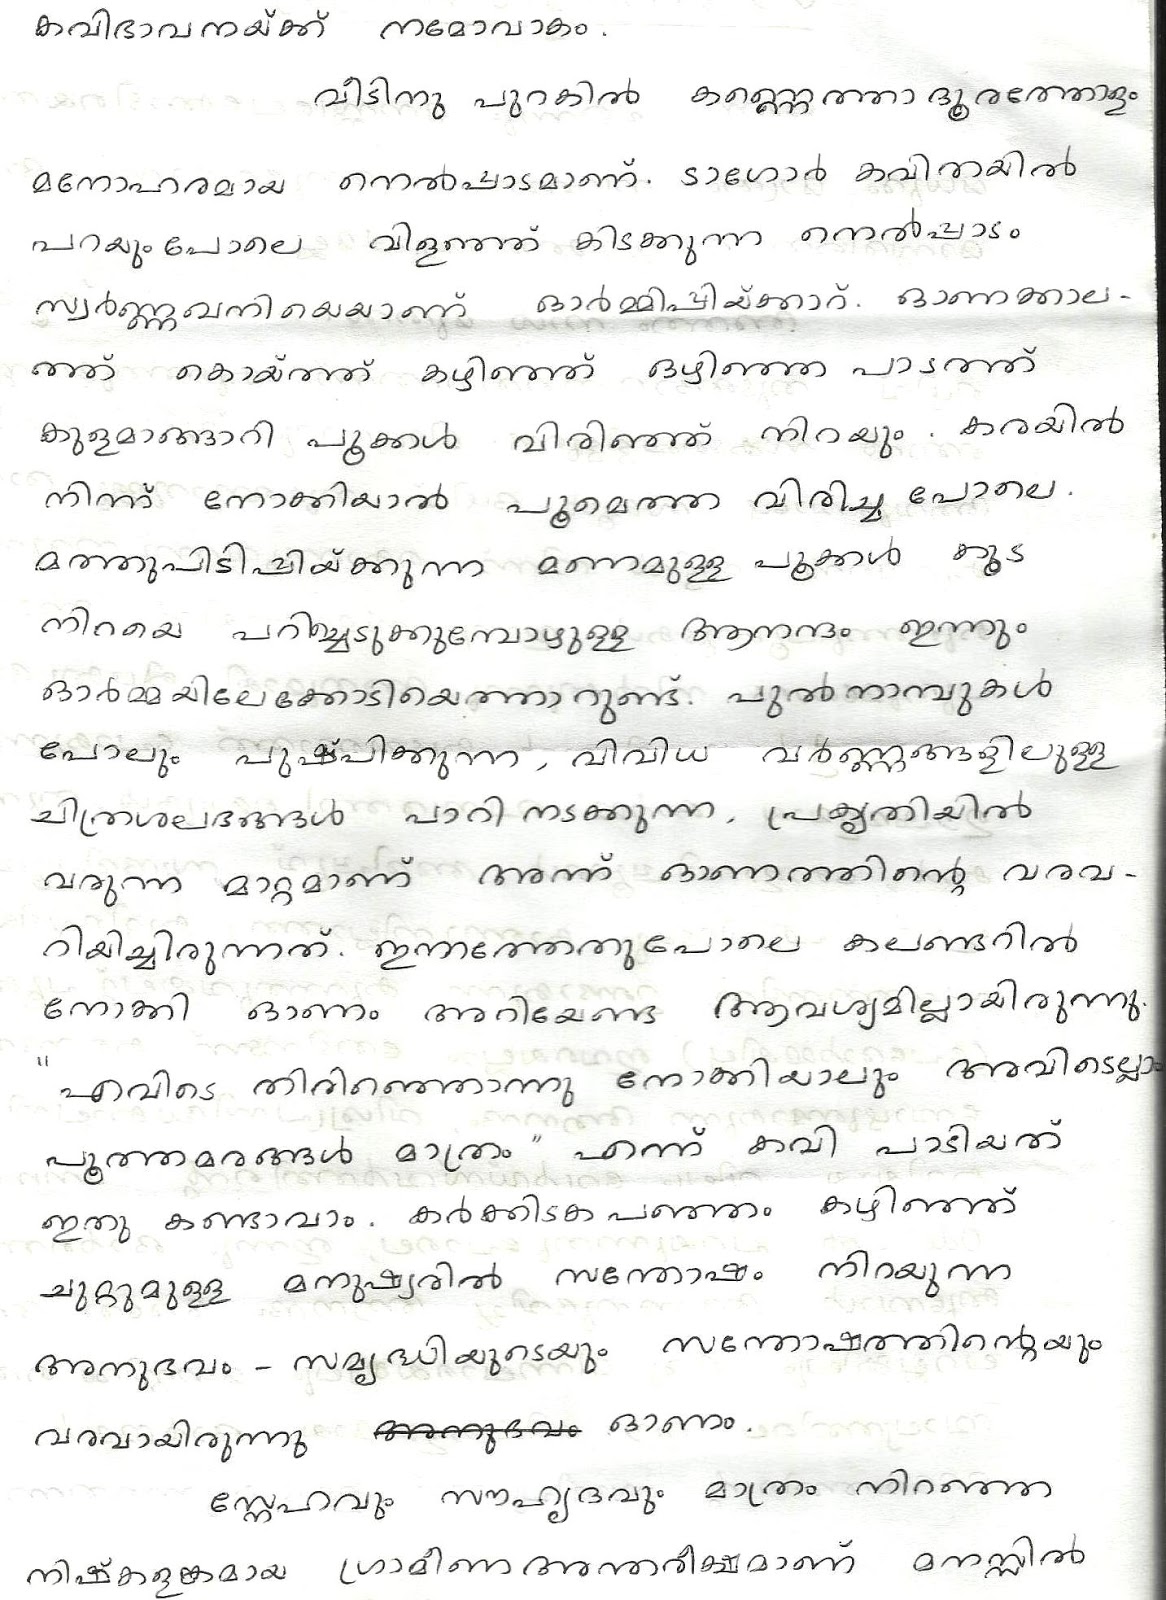 കവിഭാവനയ്ക്ക് നമോവാകം.
വീടിനു പുറകിൽ കണ്ണെത്താദൂരത്തോളം
മനോഹരമായ നെൽപ്പാടമാണ്. ടാഗോർ കവിതയിൽ
പറയുംപോലെ വിളഞ്ഞ് കിടക്കുന്ന നെൽപ്പാടം
സ്വർണ്ണഖനിയെയാണ് ഓർമ്മിപ്പിയ്ക്കാറ്. ഓണക്കാല-
ത്ത് കൊയ്ത്ത് കഴിഞ്ഞ് ഒഴിഞ്ഞ പാടത്ത്
കുളമാങ്ങാറി പൂക്കൾ വിരിഞ്ഞ് നിറയും. കരയിൽ
നിന്ന് നോക്കിയാൽ പൂമെത്ത വിരിച്ച പോലെ.
മത്തുപിടിപ്പിയ്ക്കുന്ന മണമുള്ള പൂക്കൾ കൂട
നിറയെ പറിച്ചെടുക്കുമ്പോഴുള്ള ആനന്ദം ഇന്നും
ഓർമ്മയിലേക്കോടിയെത്താറുണ്ട്. പുൽനാമ്പുകൾ
പോലും പുഷ്പിക്കുന്ന, വിവിധ വർണ്ണങ്ങളിലുള്ള
ചിത്രശലഭങ്ങൾ പാറി നടക്കുന്ന, പ്രകൃതിയിൽ
വരുന്ന മാറ്റമാണ് അന്ന് ഓണത്തിന്റെ വരവ-
റിയിച്ചിരുന്നത്. ഇന്നത്തേതുപോലെ കലണ്ടറിൽ
നോക്കി ഓണം അറിയേണ്ട ആവശ്യമില്ലായിരുന്നു.
"എവിടെ തിരിഞ്ഞൊന്നു നോക്കിയാലും അവിടെല്ലാം
പൂത്തമരങ്ങൾ മാത്രം" എന്ന് കവി പാടിയത്
ഇതു കണ്ടാവാം. കർക്കിടക പഞ്ഞം കഴിഞ്ഞ്
ചുറ്റുമുള്ള മനുഷ്യരിൽ സന്തോഷം നിറയുന്ന
അനുഭവം - സമൃദ്ധിയുടെയും സന്തോഷത്തിന്റെയും
വരവായിരുന്നു അനുഭവം ഓണം.
സ്നേഹവും സൗഹൃദവും മാത്രം നിറഞ്ഞ
നിഷ്കളങ്കമായ ഗ്രാമീണ അന്തരീക്ഷമാണ് മനസ്സിൽ